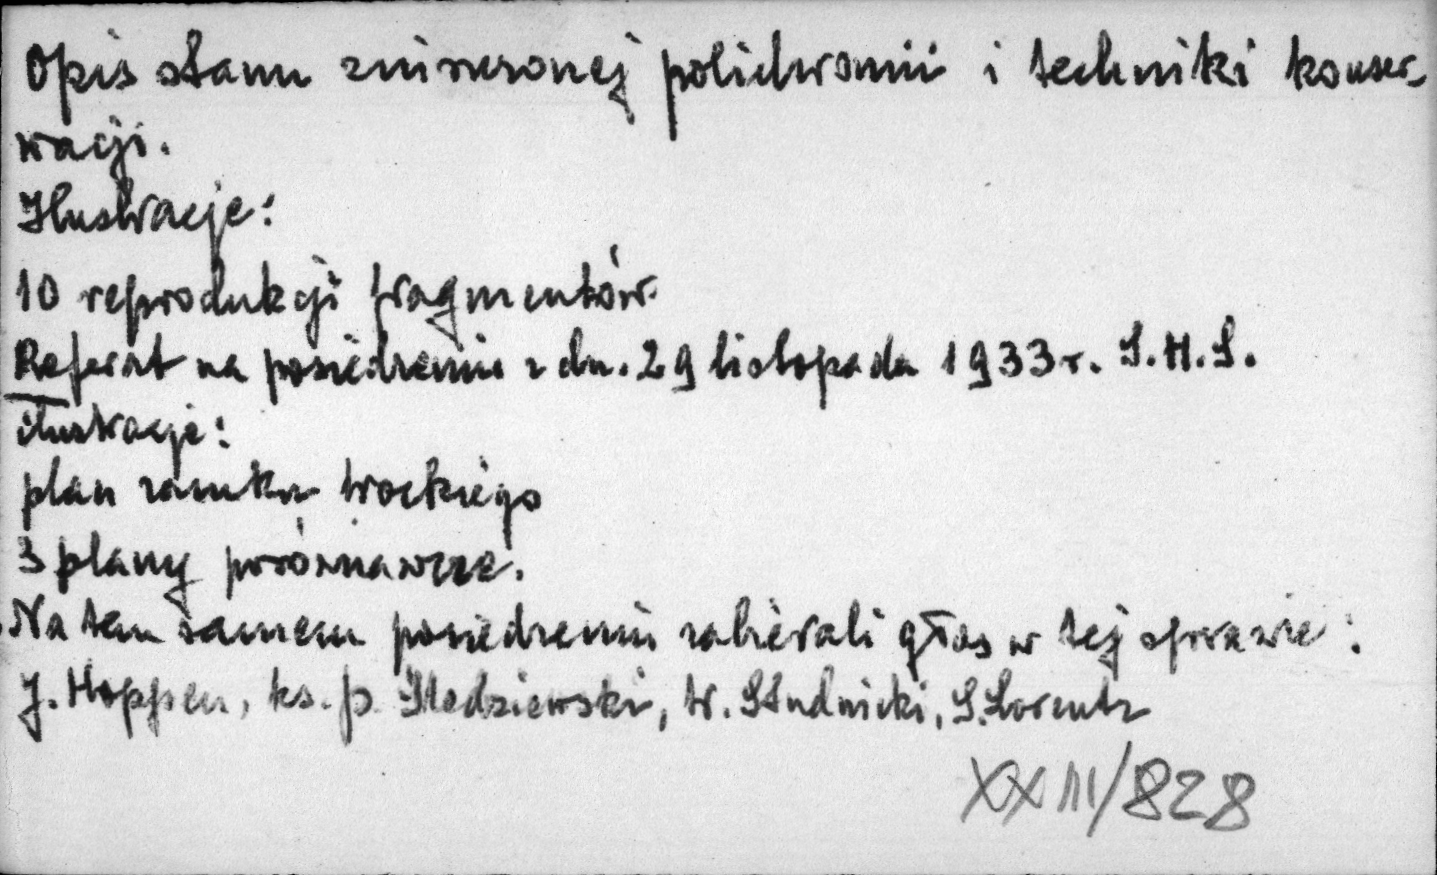 Opis stanu zniszczonej polichromii i techniki konser-
wacji.
Ilustracje:
10 reprodukcji fragmentów.
Referat na posiedzeniu z dn. 29 listopada 1933 r. S.H.S.
ilustracje:
plan zamku trockiego
3 plany porównawcze.
Na tem samem posiedzeniu zabierali głos w tej sprawie:
J. Hoppen, ks. p. Śledziewski, W. Studnicki, S. Lorentz
XXIII/828